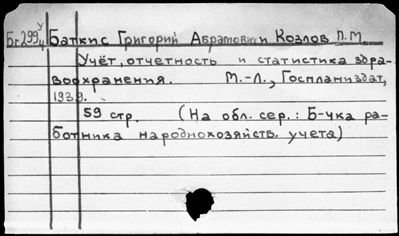 Бг299/4 Баткис Григорий Абрамович и Козлов П.М.
Учёт, отчетность и статистика здра-
воохранения. М.-Л., Госпланиздат,
1939.
59 стр. (На обл. сер.: Б-чка ра-
ботника народнохозяйств. учета)